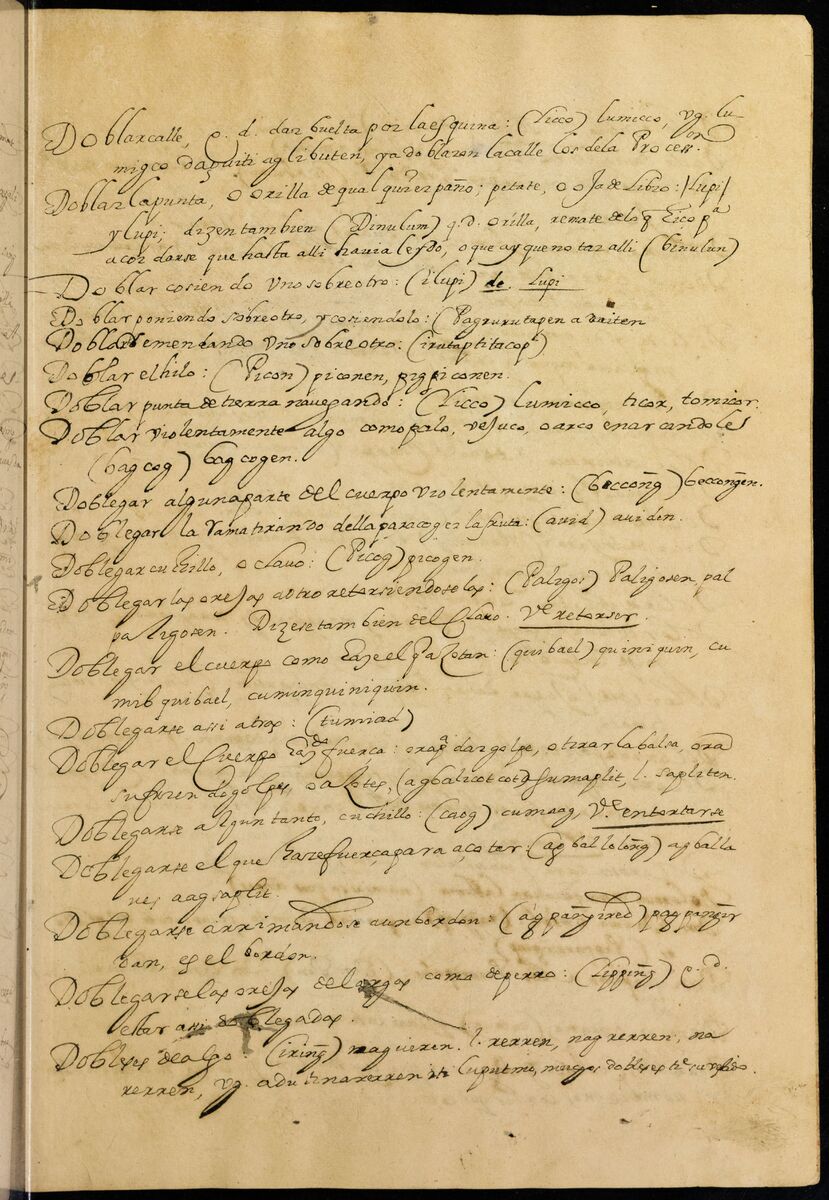 Doblar calle, q. d. dar buelta por la esquina: (licco) lumicco, vg. lu
migco daguiti aglibuten, ya doblaron la calle los de la Process.on
Doblar la punta, o orilla de qual quier paño; petate, o oja de Libro: (lupi)
y lupi; dizen tambien (Dinulum) q. d. orilla, remate de lo q
acordarse que hasta alli havia leydo, o que ay que notar alli (binulun)
Doblar cosiendo vno sobre otro: (ilupi) de. Lupi
Doblar poniendo sobre otro, y cosiendolo: (Pagrurutapen a daiten
Doblar remendando vno sobre otro: (irutap ti tacop)
Doblar el hilo: (Picon) piconen, pigpiconen.
Doblar punta de tierra navegando: (licco) lumicco, ticor, tomicor.
Doblar violentamente algo como palo, vejuco, o arco enarcandoles
(bagcog) bagcogen.
Doblegar alguna parte del cuerpo violentamente: (beccong) beccongen.
Doblegar la rama tirando della para coger la fruta: (auid) auiden.
Doblegar cuchillo, o clauo: (Picog) picogen.
Doblegar las orejas a otro retorsiendoselas: (Paligos) Paligosen, pal
paligosen. Dizese tambien del Clavo. Ve. retorser.
Doblegar el cuerpo como haze el: (quibael) quiniquin, cu
mibquibael, cuminquiniquin.
Doblegarse assi atras: (tumiad)
Doblegar el Cuerpo haz.do fuerca: ora pa dar golpe, o tirar la balsa, ora
sufriendo golpes, o azotes, (agbalicotcot) sumaplit, l. sapliten.
Doblegarse algun tanto, cuchillo: (caog) cumaog, Ve. entortarse
Doblegarse el que haze fuerça para açotar: (agballolong) agballa
ues aagsaplit.
Doblegarse arrimandose a un bordon: (agpangired) pagpangir
dan, es el bordon.
Doblegarse las orejas de largas como de perro: (lipping) q. d.
estar assi doblegadas.
Doblezes de algo: (iring) magueren. l. rerren, nagrerren, na
rerren, vg. adu ti narerren iti luputmo, muchos doblezes tie. tu vestido.